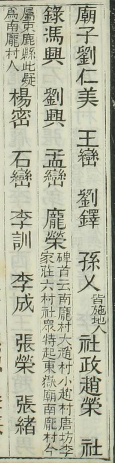 廟子劉仁美 王巒 劉鐸 孫乂 皆施地人 社政趙榮 社
錄馮興 劉興 孟巒 龐榮 碑首云南龐村大趙村小趙村唐坊李家莊六村社衆特起東嶽廟南龐村今
屬束鹿縣此疑為南龐村人 楊密 石巒 李訓 李成 張榮 張緒